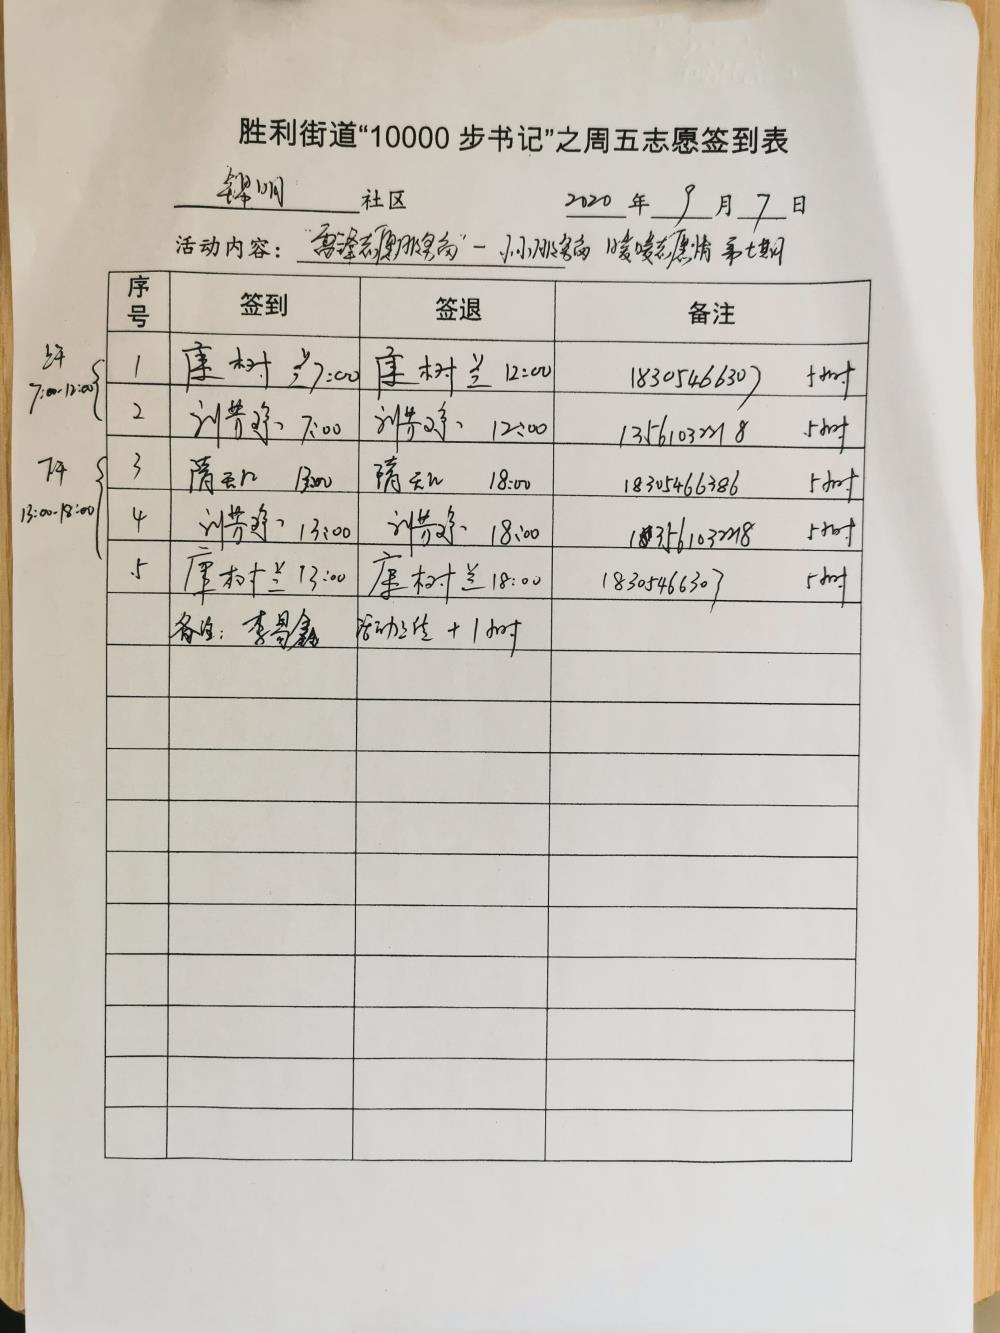 胜利街道“10000 步书记”之周五志愿签到表
社区 2020 年 9 月 7 日
活动内容： 志愿服务岗”一 小小服务岗 暖暖志愿情 第七期
序号 签到 签退 备注
上午
7:00-12:00
1 树兰 7:00 树兰 12:00 18305466307 5小时
2 刘 7:00 刘 12:00 13561032218 5小时
下午
13:00-18:00
3 隋 13:00 隋 18:00 18305466386 5小时
4 刘 13:00 刘 18:00 13561032218 5小时
5 树兰 13:00 树兰 18:00 18305466307 5小时
备注：李昌鑫 活动 + 1小时